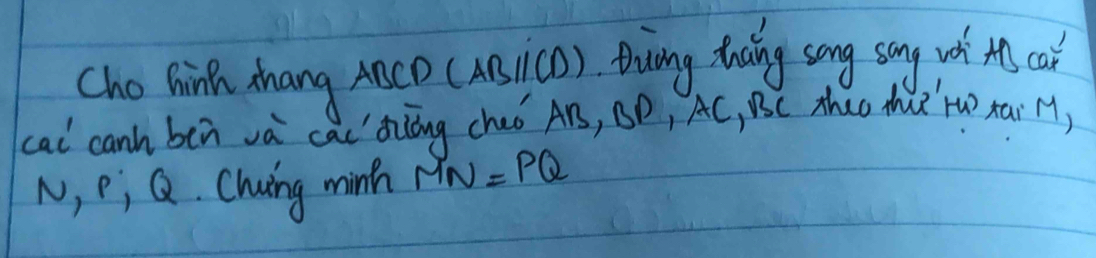 Cho hình thang ABCD (AB//CD). Đường thẳng song song với AB cắt
các cạnh bên và các đường chéo AB, BD, AC, BC theo thứ tự tại M,
N, P, Q. Chứng minh MN = PQ